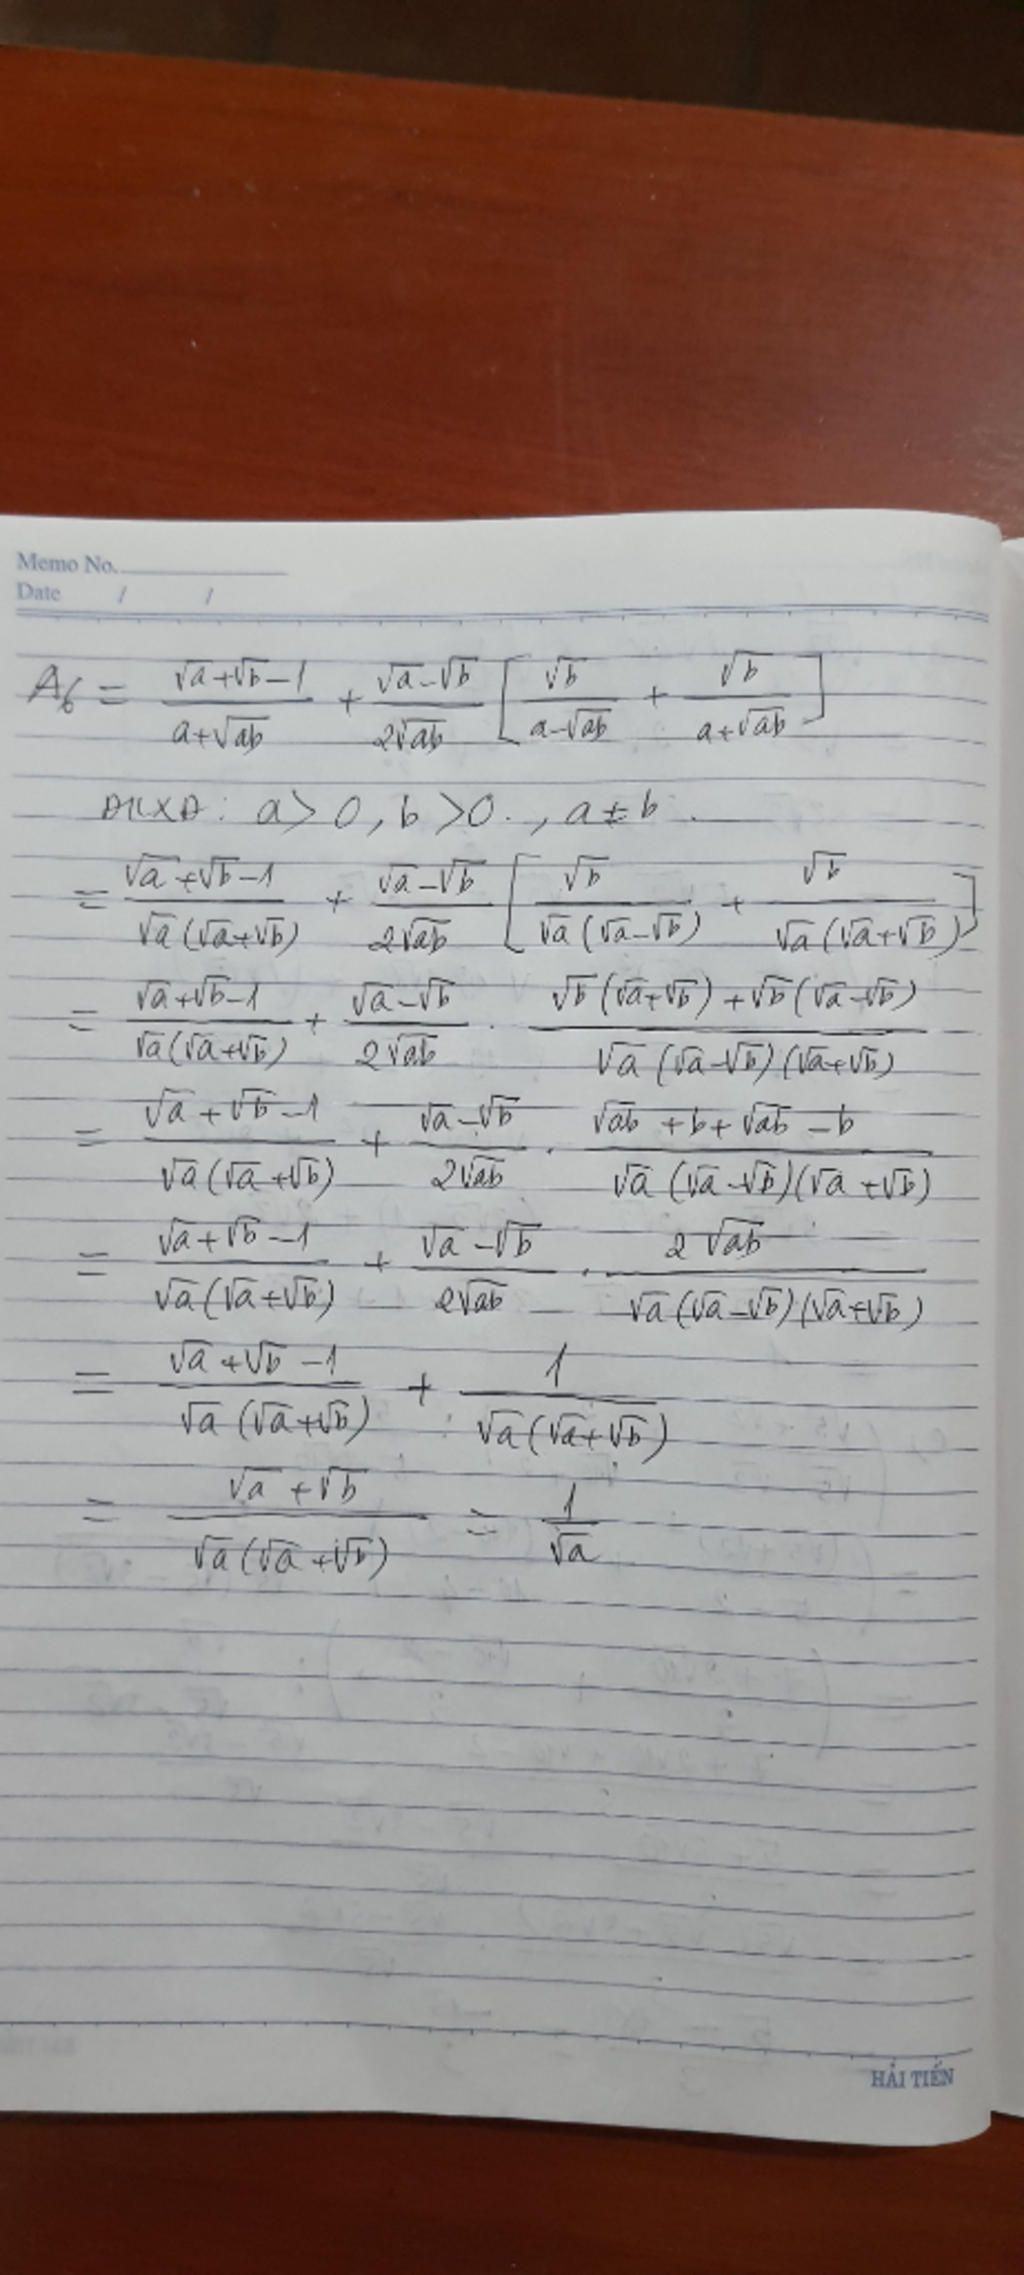 Memo No.
Date / /
A₆ = (√a+√b-1)/(a+√ab) + (√a-√b)/(2√ab) [√b/(a-√ab) + √b/(a+√ab)]
ĐKXĐ: a>0, b>0., a≠b.
= (√a+√b-1)/(√a(√a+√b)) + (√a-√b)/(2√ab) [√b/(√a(√a-√b)) + √b/(√a(√a+√b))]
= (√a+√b-1)/(√a(√a+√b)) + (√a-√b)/(2√ab) . (√b(√a+√b)+√b(√a-√b))/(√a(√a-√b)(√a+√b))
= (√a+√b-1)/(√a(√a+√b)) + (√a-√b)/(2√ab) . (√ab+b+√ab-b)/(√a(√a-√b)(√a+√b))
= (√a+√b-1)/(√a(√a+√b)) + (√a-√b)/(2√ab) . (2√ab)/(√a(√a-√b)(√a+√b))
= (√a+√b-1)/(√a(√a+√b)) + 1/(√a(√a+√b))
= (√a+√b)/(√a(√a+√b)) = 1/√a
HẢI TIẾN